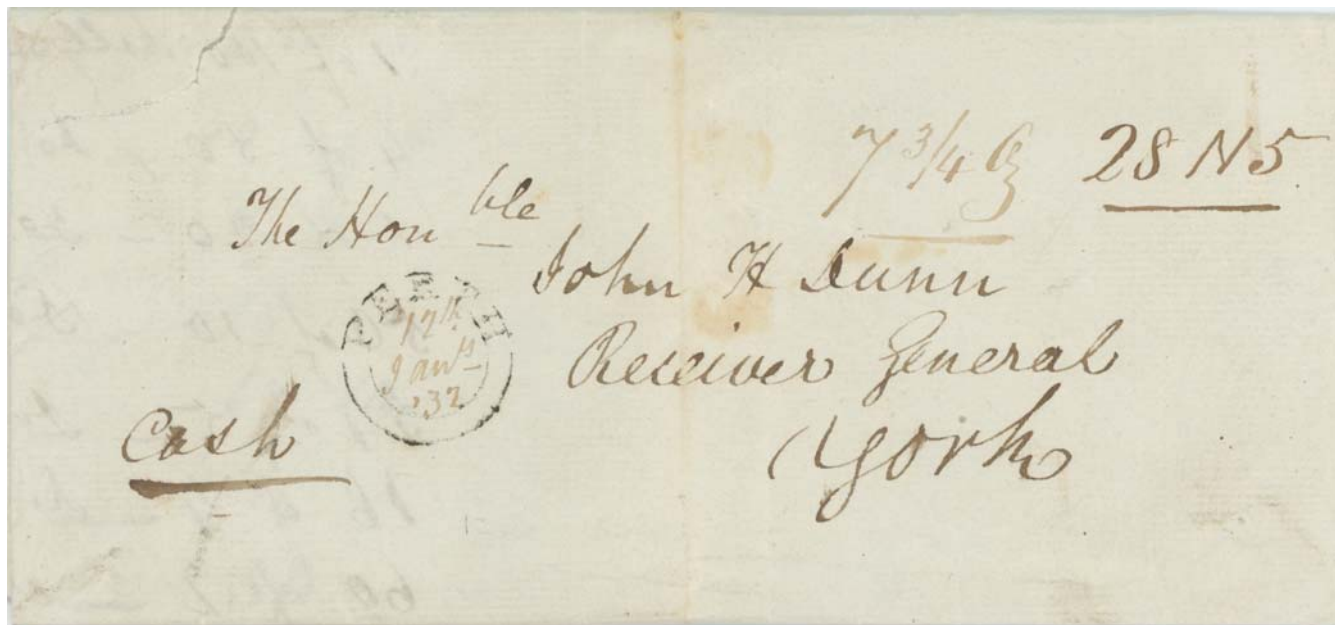 7 3/4 Oz 28 N 5
The Honble
John H Dunn
Receiver General
York
PERTH
17th
Jany
32
Cash